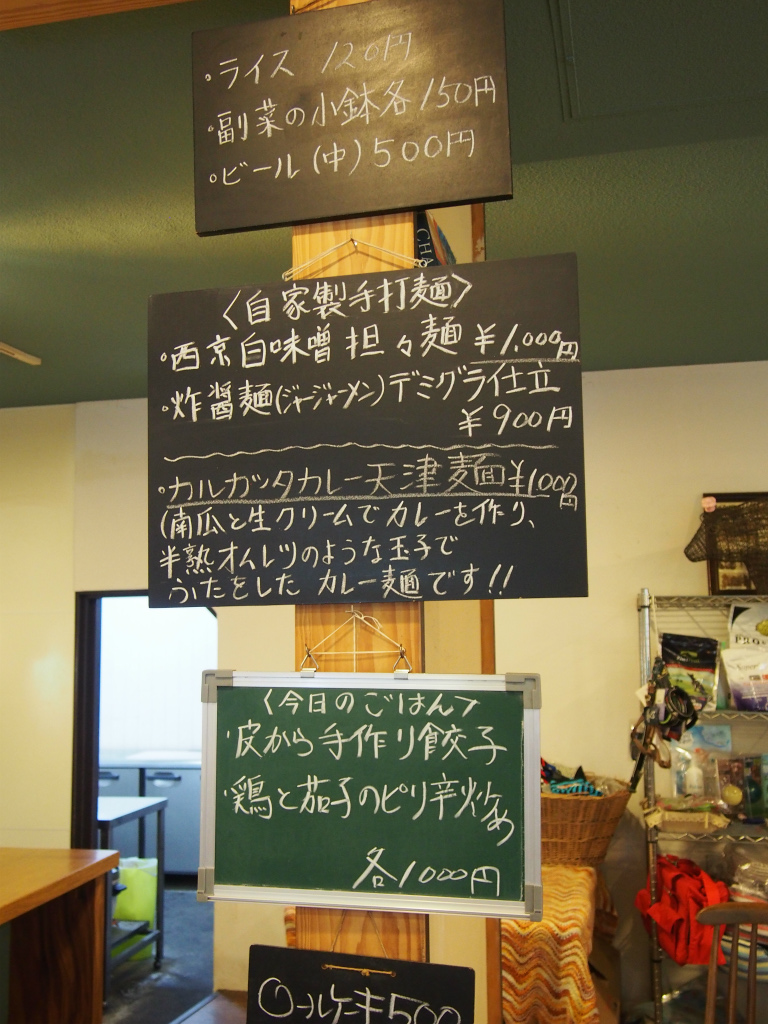 ・ライス 120円
・副菜の小鉢各150円
・ビール(中)500円
CHA
〈自家製手打麺〉
・西京白味噌担々麺 ¥1,000円
・炸醤麺(ジャージャーメン)デミグラ仕立
¥900円
・カルカッタカレー天津麺¥1000円
(南瓜と生クリームでカレーを作り、
半熟オムレツのような玉子で
ふたをした カレー麺です!!
〈今日のごはん〉
・皮から手作り餃子
・鶏と茄子のピリ辛炒め
各1000円
ロールケーキ500